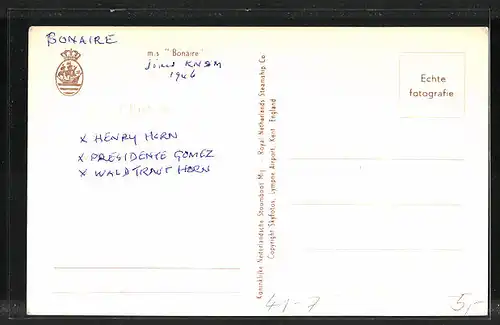 BONAIRE
m.s "Bonaire"
joins KNSM
1946
Echte
fotografie
x HENRY HORN
x PRESIDENTE GOMEZ
x WALDTRAUT HORN
Koninklijke Nederlandsche Stoomboot Mij - Royal Netherlands Steamship Co
Copyright Skyfotos, Lympne Airport, Kent England
41-7
5,-